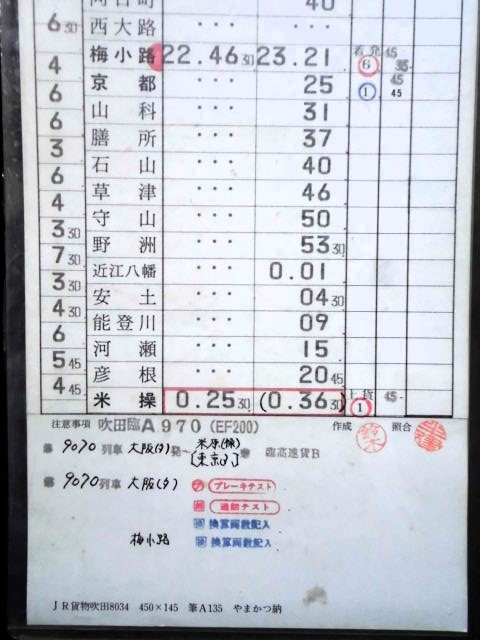 40
6 30 西大路 ・・・ ・・・
梅小路 22.46 30 23.21 着発 45
4 6 35
京都 ・・・ 25 45
6 1 45
山科 ・・・ 31
6
膳所 ・・・ 37
3
石山 ・・・ 40
6
草津 ・・・ 46
4
守山 ・・・ 50
3 30
野洲 ・・・ 53 30
7 30
近江八幡 ・・・ 0.01
3 30
安土 ・・・ 04 30
4 30
能登川 ・・・ 09
6
河瀬 ・・・ 15
5 45
彦根 ・・・ 20 45
4 45
米操 0.25 30 (0.36 30) 上貨 45
1
注意事項 吹田臨A970 (EF200) 作成 照合
9070列車 大阪(タ)発〜米原(操) 臨高速貨B
[東京タ]
9070列車 大阪(タ) ブレーキテスト
通話テスト
換算両数記入
梅小路 換算両数記入
JR貨物吹田8034 450×145 筆A135 やまかつ納